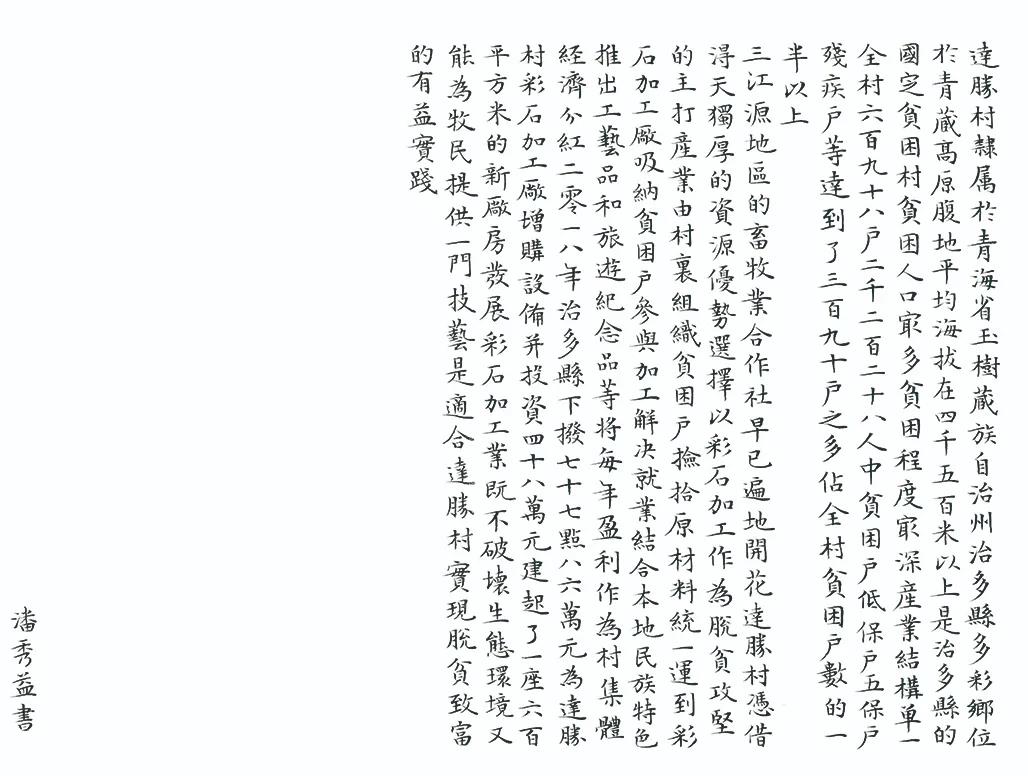 達勝村隸属於青海省玉樹蔵族自治州治多縣多彩鄉位
於青蔵高原腹地平均海拔在四千五百米以上是治多縣的
國定貧困村貧困人口㝡多貧困程度㝡深産業結構单一
全村六百九十八户二千二百二十八人中貧困户低保户五保户
殘疾户等達到了三百九十户之多佔全村貧困户數的一
半以上
三江源地區的畜牧業合作社早已遍地開花達勝村憑借
得天獨厚的資源優勢選擇以彩石加工作為脫貧攻堅
的主打産業由村裏組織貧困户撿拾原材料統一運到彩
石加工廠吸納貧困户參與加工解决就業結合本地民族特色
推出工藝品和旅遊紀念品等將每年盈利作為村集體
経濟分紅二零一八年治多縣下撥七十七點八六萬元為達勝
村彩石加工廠增購設備并投資四十八萬元建起了一座六百
平方米的新廠房發展彩石加工業既不破壞生態環境又
能為牧民提供一門技藝是適合達勝村實現脫貧致富
的有益實踐
潘秀益書